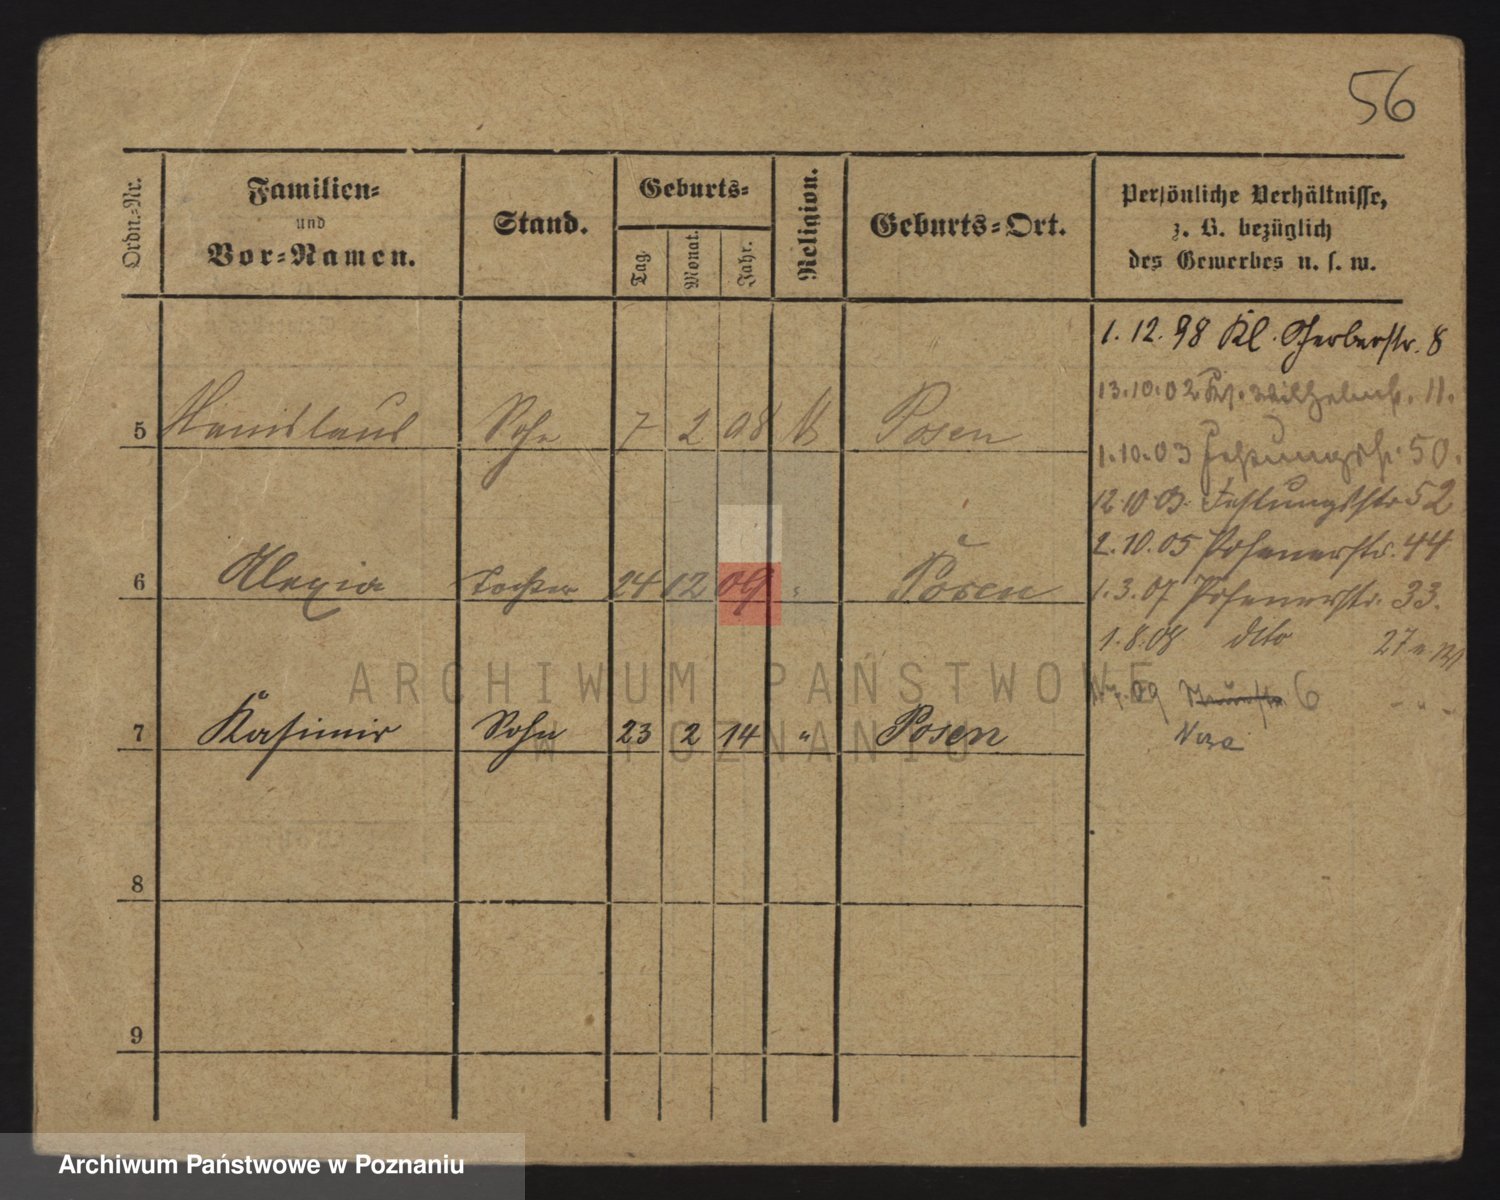 56
Ordn.-Nr.
Familien-
und
Vor-Namen.
Stand.
Geburts-
Tag.
Monat.
Jahr.
Religion.
Geburts-Ort.
Persönliche Verhältnisse,
z. B. bezüglich
des Gewerbes u. s. w.
1. 12. 98 Kl. Gerberstr. 8
13.10.02 11.
5 Sohn 7 2 98 Posen
1.10.03 Festungsstr. 50.
12.10.03. Festungsstr 52
2.10.05 Posenerstr. 44
6 Alexia Tochter 24 12 09 " Posen
1.3.07 Posenerstr. 33.
1.8.08 dito 27
ARCHIWUM PAŃSTWOWE
09 6
7 Kasimir Sohn 23 2 14 " Posen
W POZNANIU
8
9
Archiwum Państwowe w Poznaniu